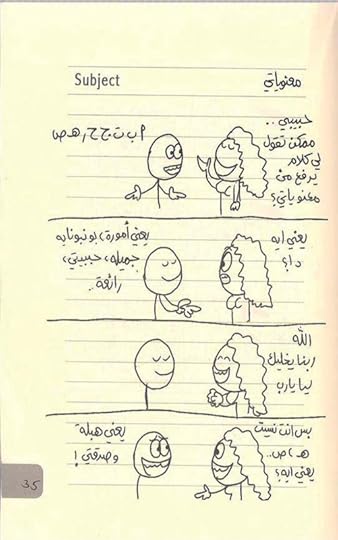 Subject معنوياتي
حبيبي ..
ممكن تقول
لي كلام
يرفع من
معنوياتي؟
أ، ب، ت، ج، ح، ر، هـ، ص
يعني ايه
دا؟
يعني أمورة، بونبوناية
جميلة، حبيبتي،
رائعة..
الله
ربنا يخليك
ليا يارب
بس انت نسيت
هـ، ص..
يعني ايه؟
يعني هبلة
وصدقتي!
35